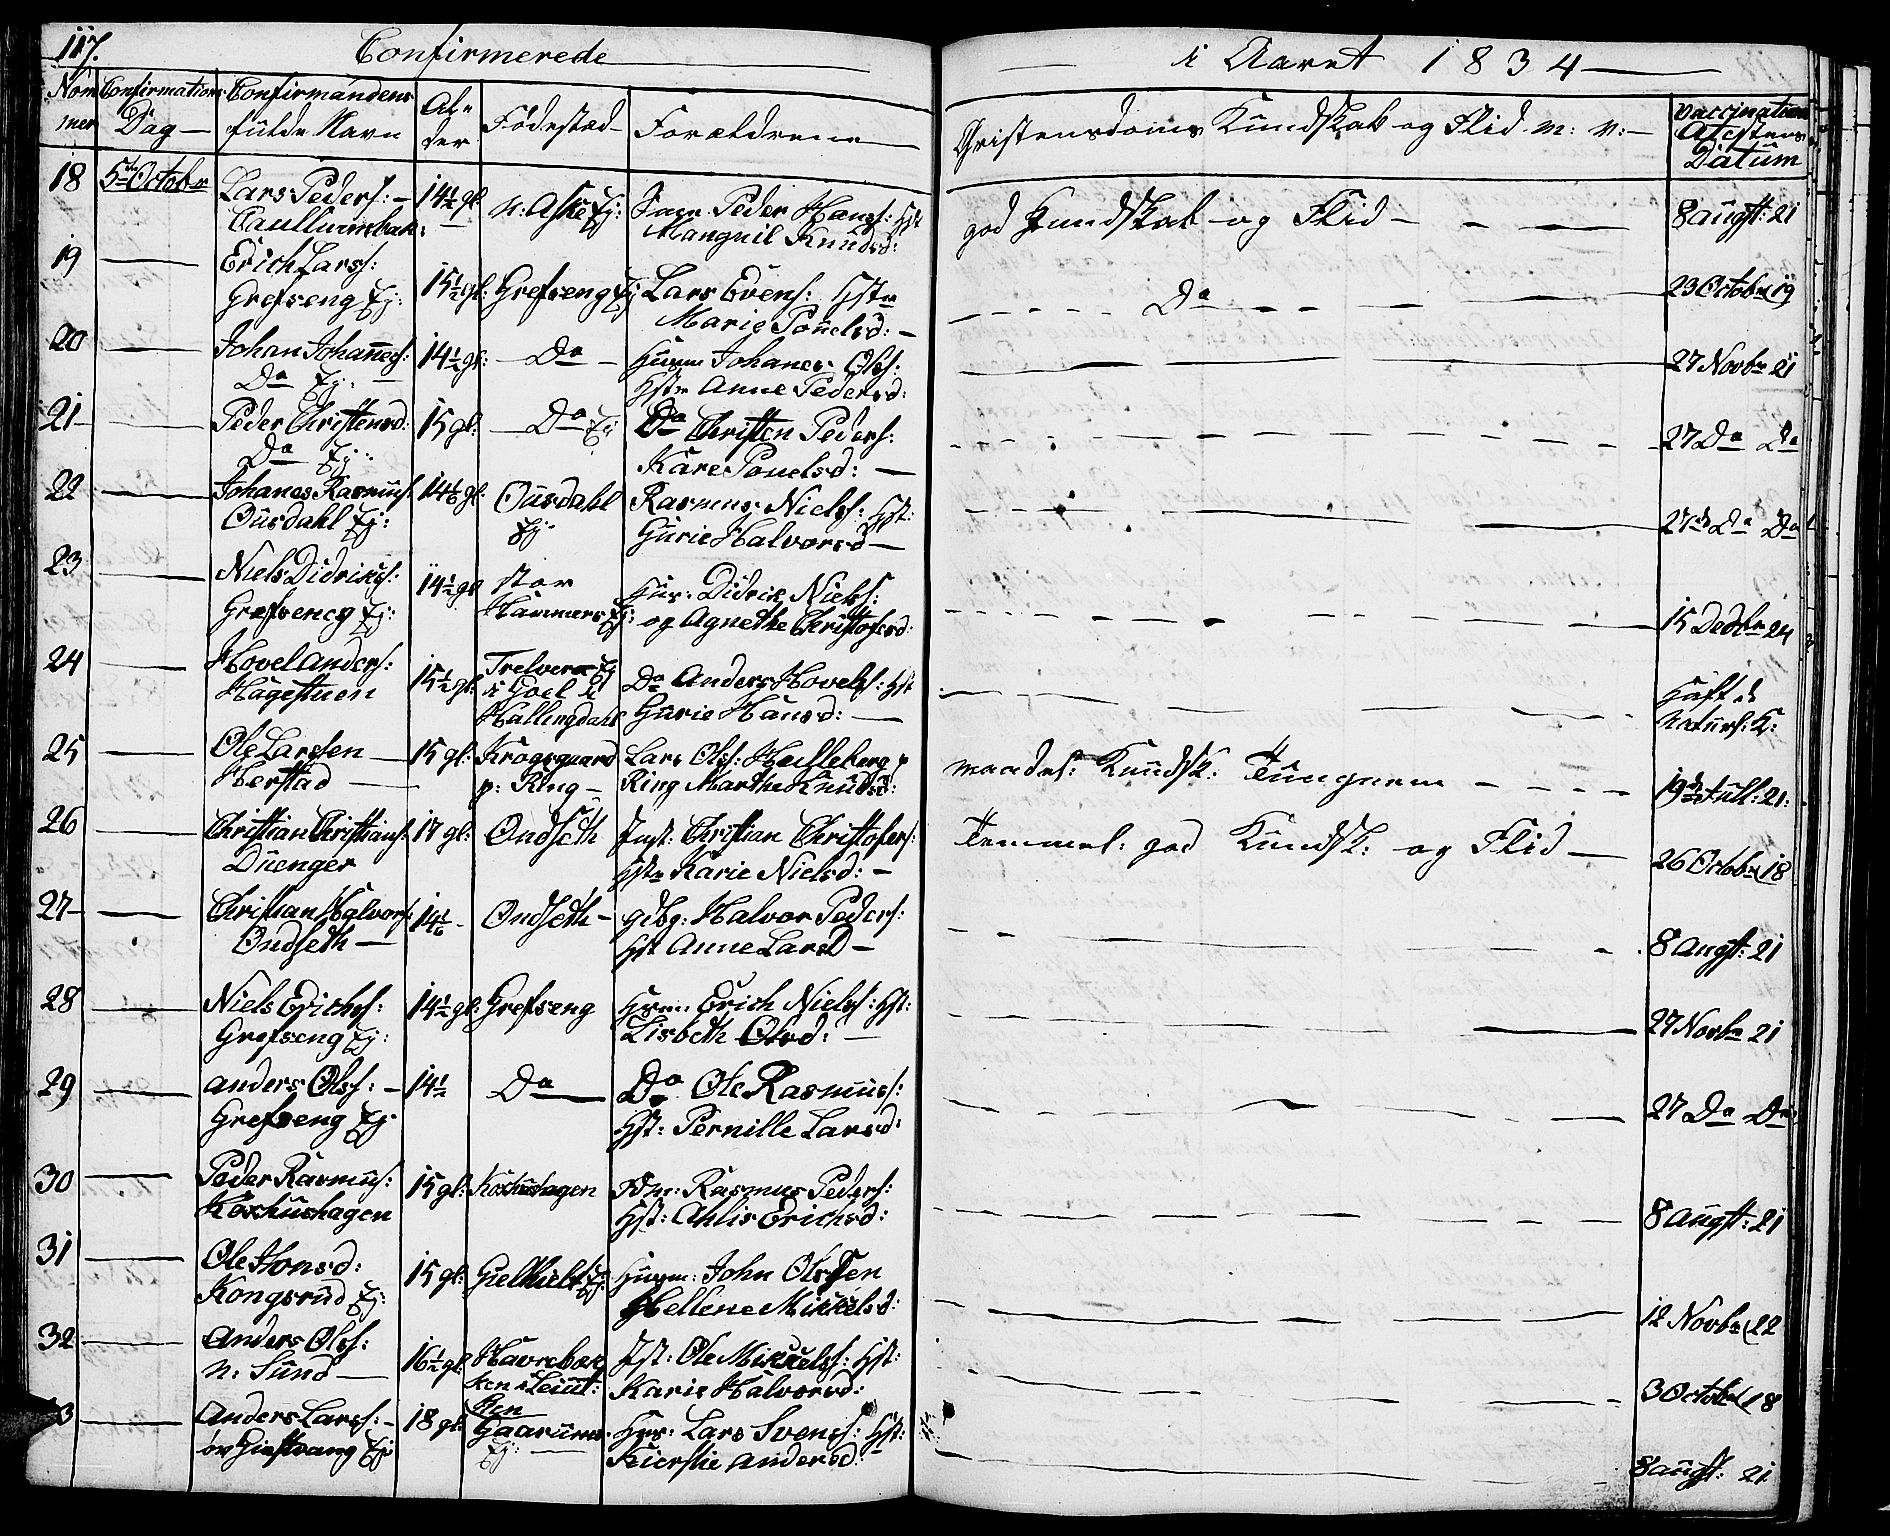 117. Confirmerede i Aaret 1834
Nom mer Confirmations Dag Confirmandens fulde Navn Al- der Fødested Forældrene Christendoms Kundskab og Flid m: v: Vaccinations Attestens Datum
18 5te Octobr Lars Peders: 14½ gl n: Aske Ej: Peder Hanss: Hst 8 augst: 21
god Kundskab og Flid
Mangnil Knudsd:
19 Erich Larss: Grefseng Ej: 15½ gl: Grefseng Ej Lars Evens: Hstr Marie Pouelsd: Do 23 Octobr 19
20 Johan Johannes: Do Ej: 14½ gl: Do Huusm Johanes Olss: Hstr Anne Pedersd: 27 Novbr 21
21 Peder Christensd: Do Ej: 15 gl: Do Ej Do Christen Peders: Kare Pouelsd: 27 Do Do
22 Johanes Rasmuss: Ousdahl Ej: 14⅙ gl: Ousdahl Ej: Rasmus Nielss: Hst: Gurie Halvorsd 27de Do Do
23 Niels Didrikss: Grefseng Ej: 14½ gl stor Hammers Ej: Huus: Didrik Nielss: og Agnethe Christofersd: 15 Decbr 24
24 Hovel Anders: Hagestuen 15½ gl: Trelveraa Ej i Goel i Hallingdahl Do Anders Hovelss: Hst Gurie Hansd: Haft de naturl: K:
25 Ole Larssen Herstad 15 gl: Krogsgaard p: Ring Lars Olss: Helleberg p Ring Marthe Knudsd: maadel: Kundsk: Tungnem 19de Juli: 21:
26 Christian Christians: Duenger 17 gl: Ondseth Inst: Christian Christofers: Hstr Karie Nielsd: Temmel: god Kundsk: og Flid 26 Octobr 18
27 Christian Halvors: Ondseth 14⅙ Ondseth gdbg: Halvor Peders: Hst Anne Larsd 8 augst: 21
28 Niels Erichss: Grefseng Ej: 14½ gl: Grefseng Husm: Erich Nielss: Hst: Lisbeth Olsd: 27 Novbr 21
29 anders Olss: Grefseng Ej: 14½ Do Do Ole Rasmuss: Hst: Pernille Larsd: 27 Do Do
30 Peder Rasmus: Koxhushagen 15 gl: Koxhushagen Rasmus Peders: Hst: Ahlis Erichsd: 8 augst: 21
31 Ole Jonsd: Kongsrud Ej: 15 gl: Ej: Huusm: John Olssen Hellene Mikkelsd: 12 Novbr 22
32 Anders Olss: n: Sund 16½ gl Havrebak ken i Leiut: Ist: Ole Mikkelss: Hst: Karie Halvorsd: 3 Octobr 18
3 Anders Larss: Giestvang Ej: 18 gl: Gaarum Ej: Hus: Lars Svenss: Hst: Kierstie andersd: 8 augst: 21